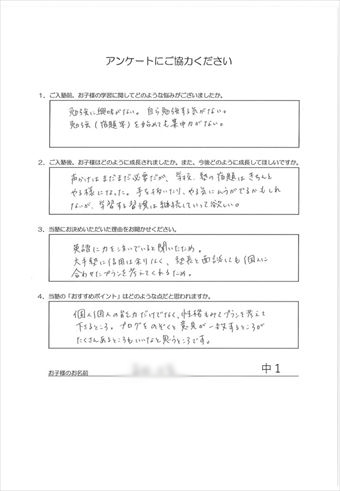 アンケートにご協力ください
1. ご入塾前、お子様の学習に関してどのような悩みがございましたか。
勉強に興味がない。自ら勉強する気がない。
勉強(宿題等)を始めても集中力がない。
2. ご入塾後、お子様はどのように成長されましたか。また、今後どのように成長してほしいですか。
声かけはまだまだ必要だが、学校、塾の宿題はきちんと
やる様になった。手を抜いたり、やる気にムラがでるかもしれ
ないが、学習する習慣は継続していって欲しい。
3. 当塾にお決めいただいた理由をお聞かせください。
英語に力を注いでいると聞いたため。
大手塾に信用は余りなく、塾長と面談しても1個人に
合わせたプランを考えてくれるため。
4. 当塾の「おすすめポイント」はどのような点だと思われますか。
個人個人の能力だけでなく、性格もみてプランを考えて
下さるところ。ブログをのぞくと意見が一致するところが
たくさんあるところもいいなと思うところです。
お子様のお名前
中1